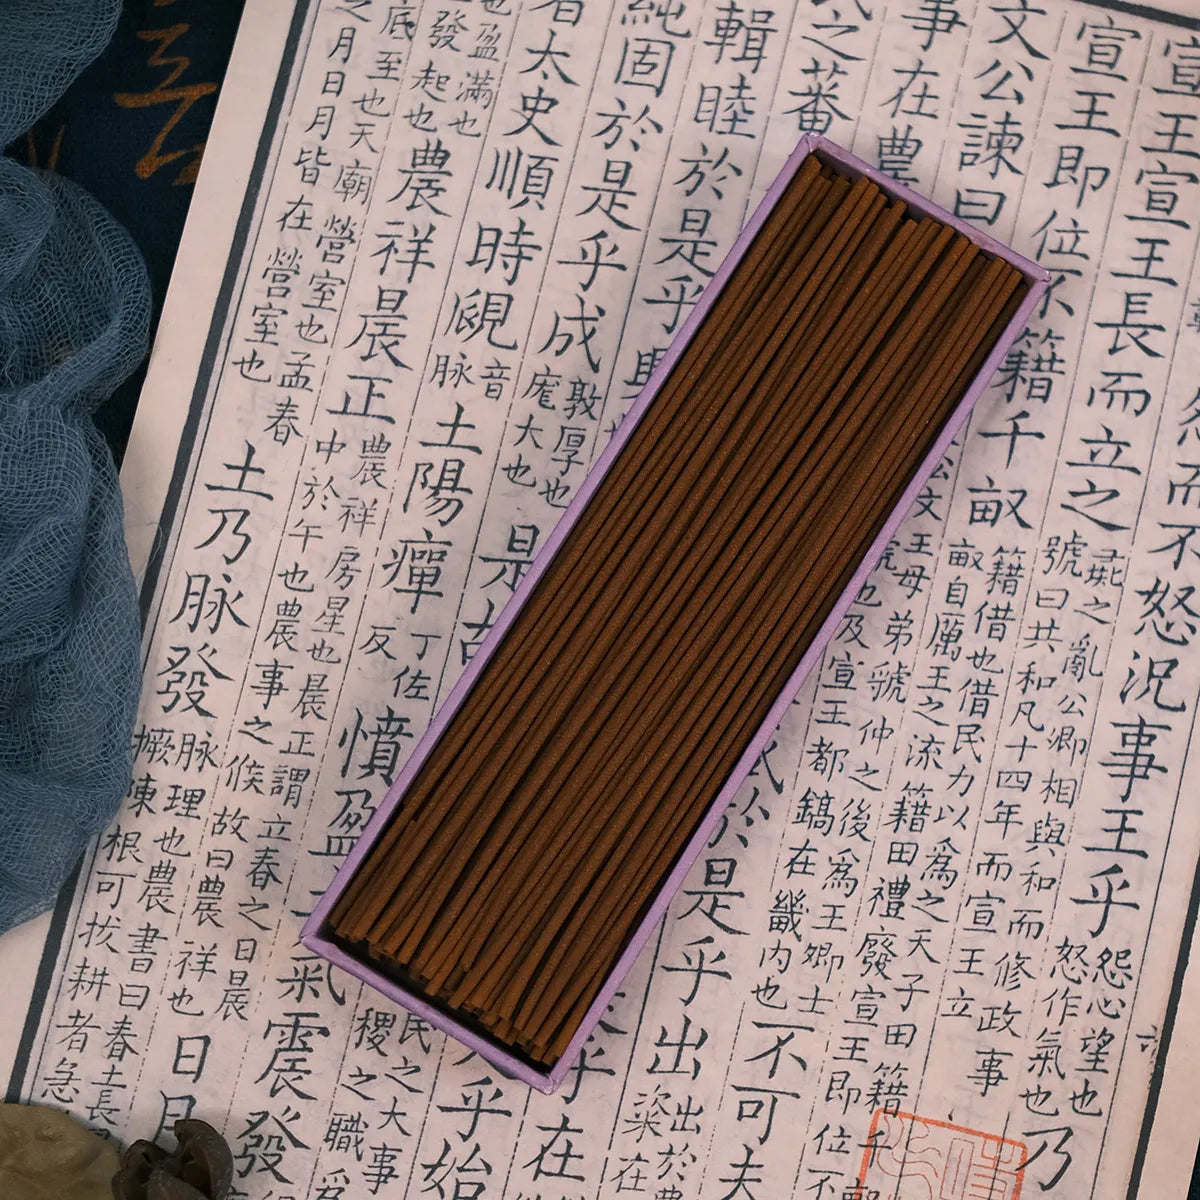 怨而不怒況事王乎
怨心望也
怒作氣也
乃
宣王宣王長而立之
彘之亂公卿相與和而修政事
號曰共和凡十四年而宣王立
宣王即位不籍千畝
籍借也借民力以為之天子田籍千
畝自厲王之流籍田禮廢宣王即位不
文公諫曰
文
王母弟虢仲之後為王卿士
也及宣王都鎬在畿內也
不可夫
事在農
於是乎出
出於農
粢在
之蕃
乎在
輯睦於是乎
乎始
純固於是乎成
敦厚也
厖大也
是故
民之大事
稷之職為
者太史順時覛
音
脈
土陽癉
丁佐
反
憤盈土氣震發
也盈滿也
發起也
農祥晨正
農祥房星也晨正謂立春之日晨
中於午也農事之候故曰農祥也
日月
底至也天廟營室也孟春
之月日月皆在營室也
土乃脈發
脈理也農書曰春土長
橛陳根可拔耕者急